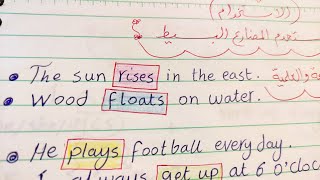 (الاستخدام)
تخدم المضارع البسيط
• The sun rises in the east.
• Wood floats on water.
• He plays football every day.
I always get up at 6 O'cloc